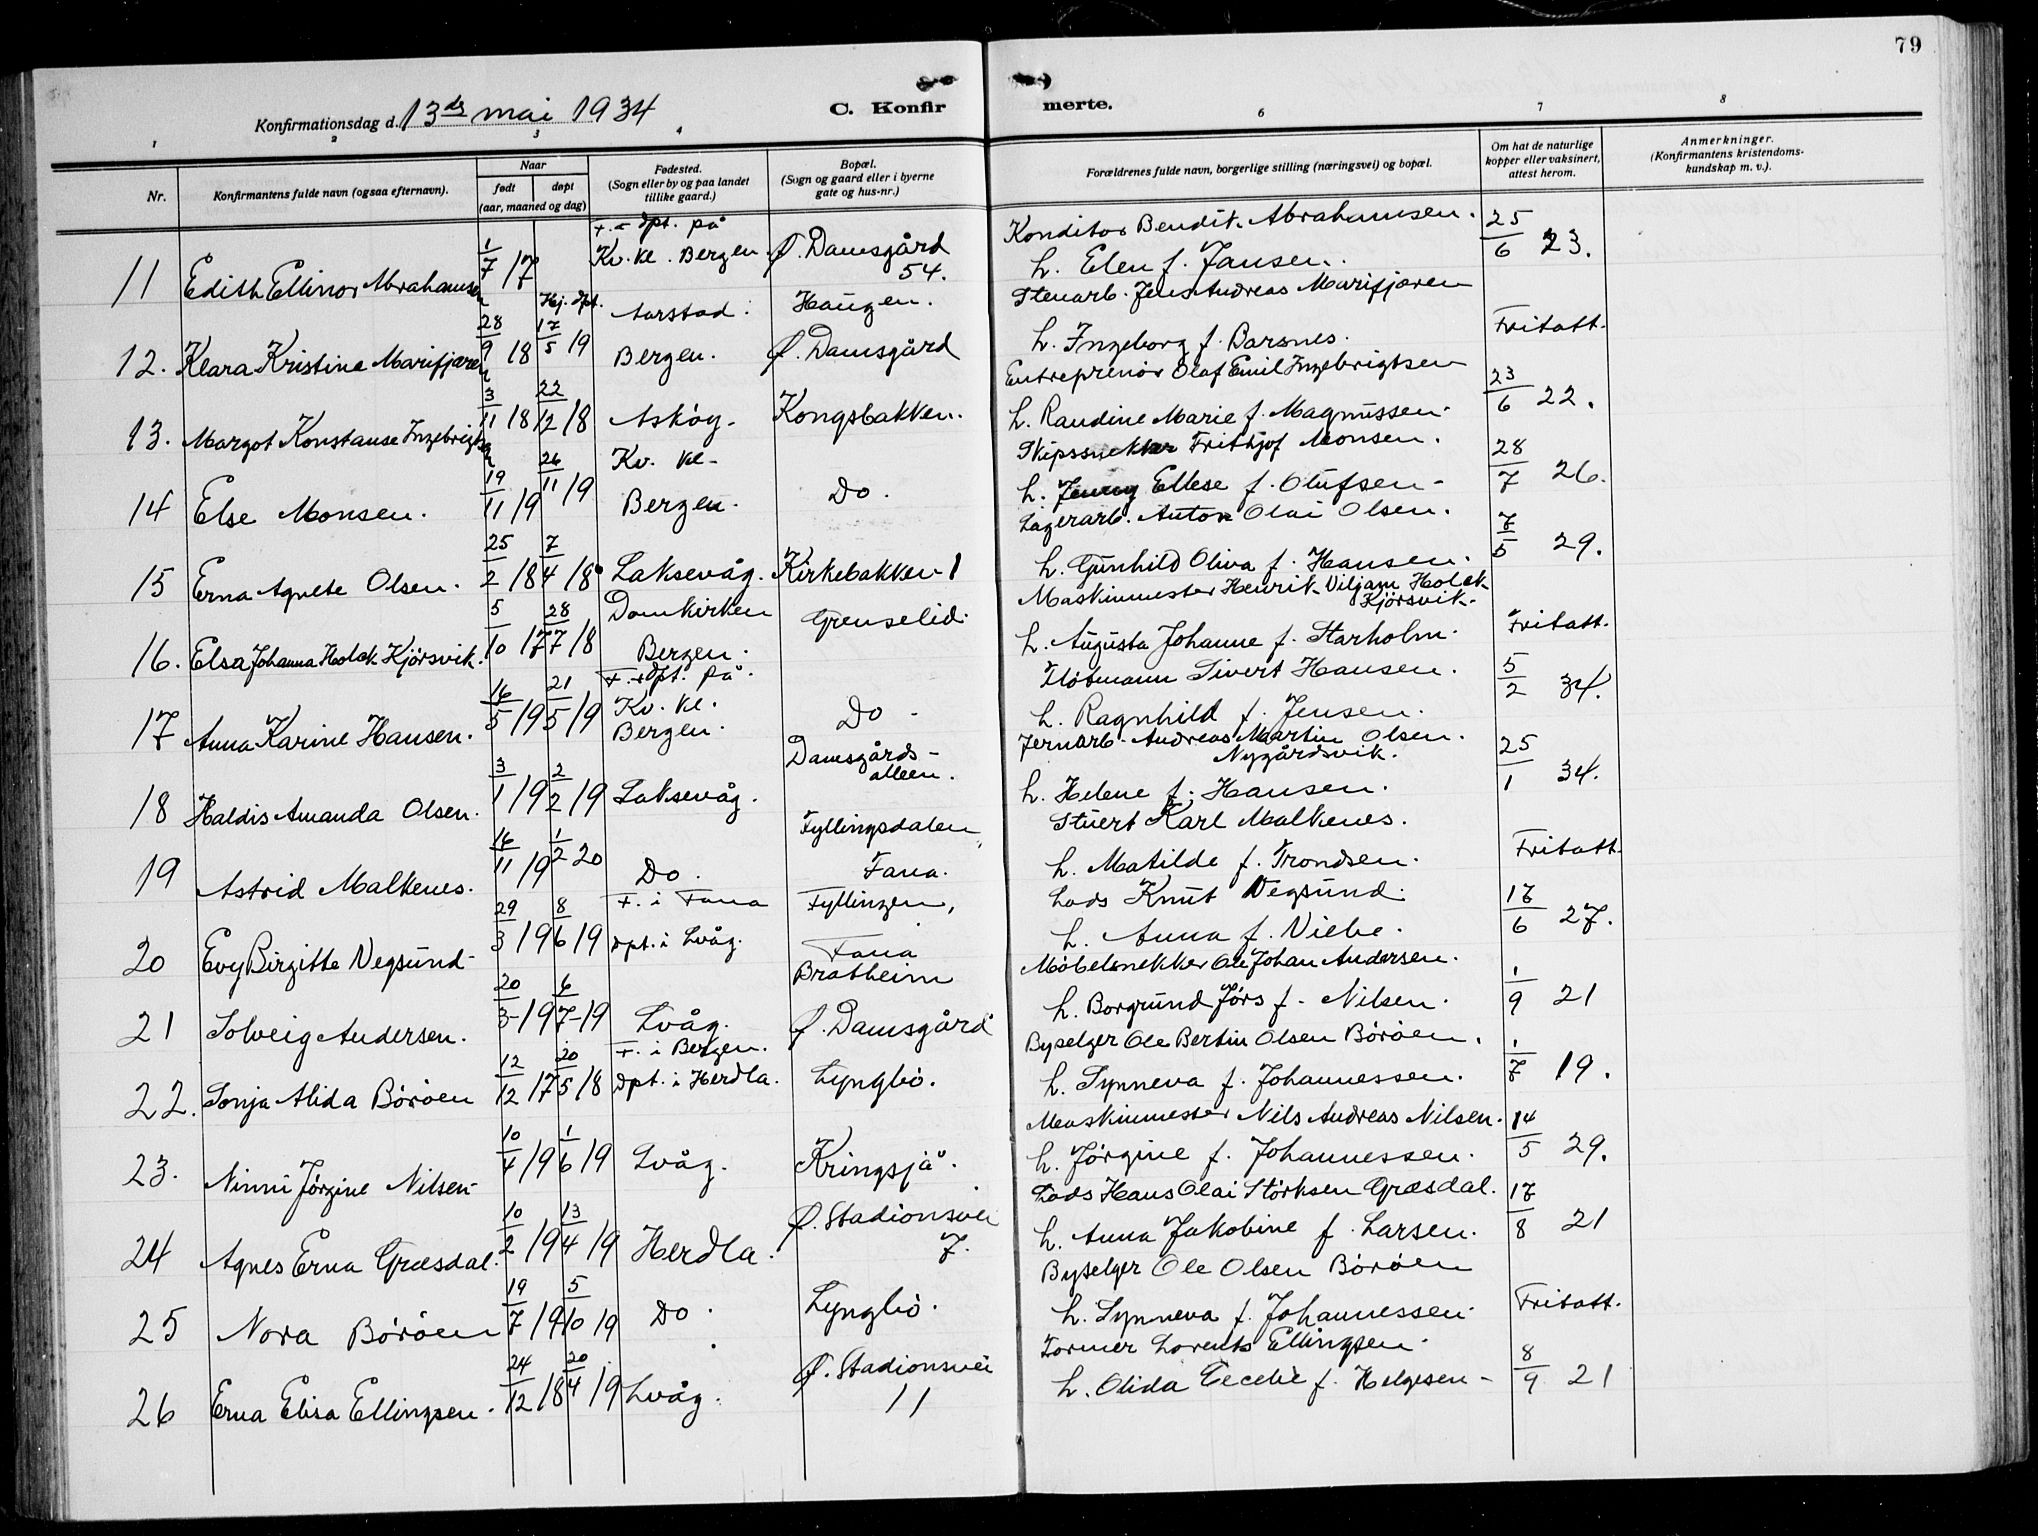 79
Konfirmationsdag d. 13de mai 1934
C. Konfir merte.
1 2 3 4 6 7 8
Nr.
Konfirmantens fulde navn (ogsaa efternavn).
Naar
født døpt
(aar, maaned og dag)
Fødested.
(Sogn eller by og paa landet
tillike gaard.)
Bopæl.
(Sogn og gaard eller i byerne
gate og hus-nr.)
Forældrenes fulde navn, borgerlige stilling (næringsvei) og bopæl.
Om hat de naturlige
kopper eller vaksinert,
attest herom.
Anmerkninger.
(Konfirmantens kristendoms-
kundskap m. v.).
11 Edith Ellinor Abrahamsen 1/7 17 F. + dpt. på Kv. kl. Bergen. Ø. Damsgård 54. Konditor Bendit. Abrahamsen.
h. Elen f. Jansen. 25/6 23.
12. Klara Kristine Marifjæren 28/9 18 Hj. dpt. 17/5 19 Aarstad. Bergen. Haugen. Ø. Damsgård Stenarb. Jens Andreas Marifjæren
h. Ingeborg f. Barsnes. Fritatt.
13. Margot Konstanse Ingebrigtsen 3/11 18 22/12 18 Askøy. Kongsbakken. Entreprenør Olaf Emil Ingebrigtsen
h. Randine Marie f. Magnussen. 23/6 22.
14 Else Monsen. 19/11 19 26/11 19 Kv. kl. Bergen. Do. Skipssnekker Frithjof Monsen.
h. Jenny Ellese f. Olufsen. 28/7 26.
15 Erna Agnete Olsen. 25/2 18 7/4 18 Laksevåg. Kirkebakken 1 Lagerarb. Anton Olai Olsen.
h. Gunhild Oliva f. Hansen. 7/5 29.
16. Elsa Johanna Holck Kjørsvik. 5/10 17 28/7 18 Domkirken Bergen. Grenselid. Maskinmester Henrik Viljam Holck Kjørsvik.
h. Augusta Johanne f. Starholm. Fritatt.
17 Anna Karine Hansen. 16/5 19 21/5 19 F. + dpt. på Kv. kl. Bergen. Do. Fløtmann Sivert Hansen.
h. Ragnhild f. Jensen. 5/2 34.
18 Haldis Amanda Olsen. 3/1 19 2/2 19 Laksevåg. Damsgårds-alleen. Jernarb. Andreas Martin Olsen. Nygårdsvik.
h. Helene f. Hansen. 25/1 34.
19 Astrid Malkenes. 16/11 19 1/2 20 Do. Fyllingsdalen, Fana. Stuert Karl Malkenes.
h. Matilde f. Trondsen. Fritatt.
20 Evy Birgitte Vegsund 29/3 19 8/6 19 F. i Fana dpt. i Lvåg. Fyllingen, Fana Lods Knut Vegsund.
h. Anna f. Vielie. 17/6 27.
21 Solveig Andersen. 20/3 19 6/7 19 Lvåg. Bratheim Ø. Damsgård Møbelsnekker Ole Johan Andersen.
h. Borgund Jørs f. Nilsen. 1/9 21
22. Sonja Alida Børøen 12/12 17 20/5 18 F. i Bergen. Dpt. i Herdla. Lyngbø. Byselger Ole Bertin Olsen Børøen.
h. Synneva f. Johannessen. 1/7 19.
23. Ninni Jørgine Nilsen 10/4 19 1/6 19 Lvåg. Kringsjå. Maskinmester Nils Andreas Nilsen.
h. Jørgine f. Johannessen. 14/5 29.
24 Agnes Erna Græsdal. 10/2 19 13/4 19 Herdla. Ø. Stadionsvei 7. Lods Hans Olai Størksen Græsdal.
h. Anna Jakobine f. Larsen. 17/8 21
25 Nora Børøen 19/7 19 5/10 19 Do. Lyngbø. Byselger Ole Olsen Børøen
h. Synneva f. Johannessen. Fritatt.
26 Erna Elisa Ellingsen. 24/12 18 20/4 19 Lvåg. Ø. Stadionsvei 11 Former Lorents Ellingsen.
h. Olida Cecelie f. Helgesen 8/9 21